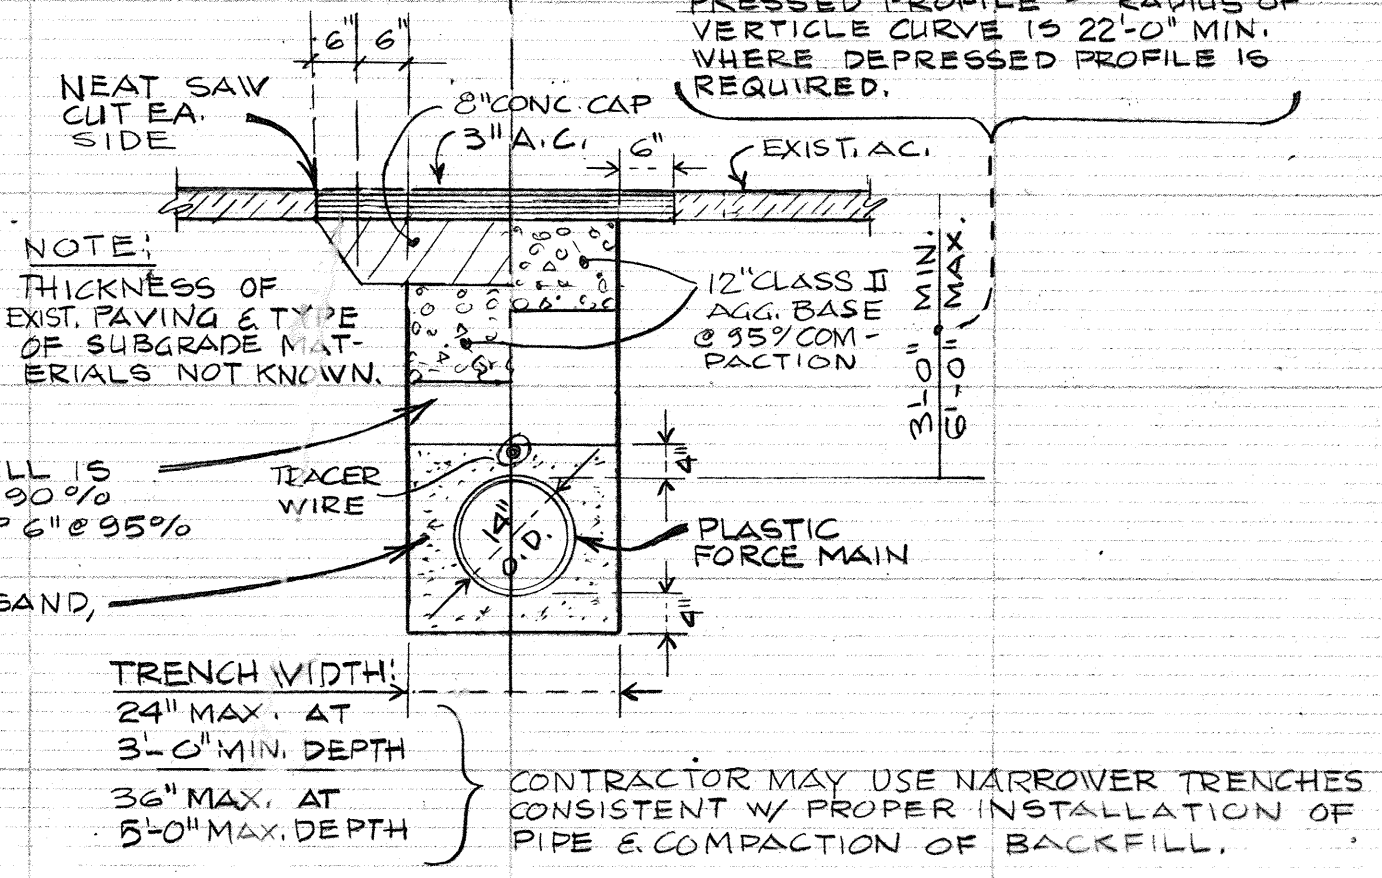 PRESSED PROFILE - RADIUS OF
VERTICLE CURVE IS 22'-0" MIN.
WHERE DEPRESSED PROFILE IS
REQUIRED.
6" 6"
NEAT SAW
CUT EA.
SIDE
8" CONC. CAP
3" A.C.
6"
EXIST. AC.
NOTE:
THICKNESS OF
EXIST. PAVING & TYPE
OF SUBGRADE MAT-
ERIALS NOT KNOWN.
12" CLASS II
AGG. BASE
@ 95% COM-
PACTION
3'-0" MIN.
6'-0" MAX.
LL IS
90%
P 6" @ 95%
TRACER
WIRE
4"
14"
O.D.
PLASTIC
FORCE MAIN
SAND,
4"
TRENCH WIDTH:
24" MAX. AT
3'-0" MIN. DEPTH
36" MAX. AT
5'-0" MAX. DEPTH
CONTRACTOR MAY USE NARROWER TRENCHES
CONSISTENT W/ PROPER INSTALLATION OF
PIPE & COMPACTION OF BACKFILL.